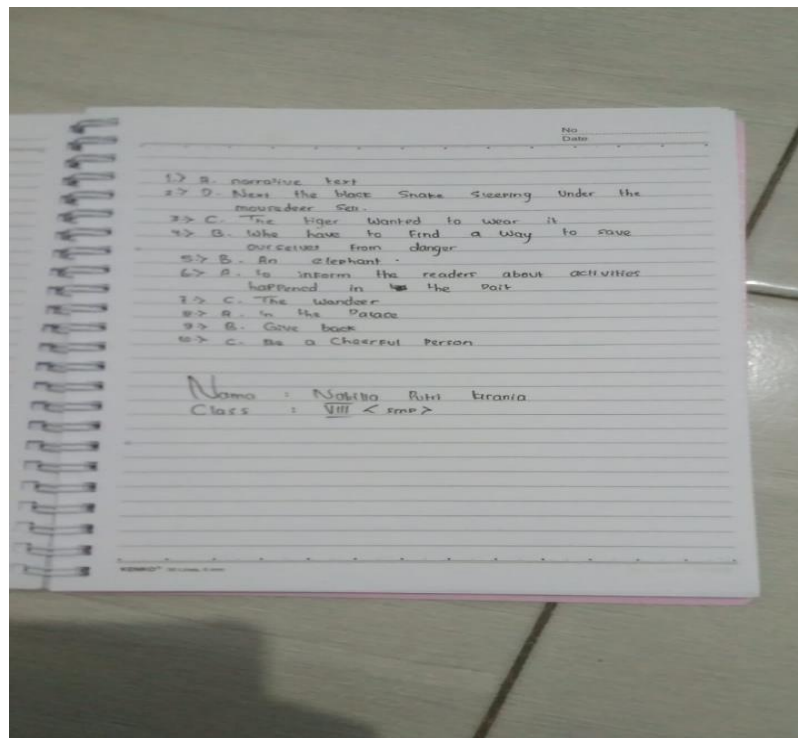 No
Date
1.> A. narrative text
2.> D. Next the black Snake Sleeping Under the
mousedeer Sat.
3.> C. The tiger wanted to wear it
4.> B. Whe have to Find a way to save
ourselves from danger
5.> B. An elephant.
6.> A. to inform the readers about activities
happened in the Past
7.> C. The Wandeer
8.> A. in the Palace
9.> B. Give back
10.> C. Be a Cheerful Person
Nama : Putri kirania
Class : VIII < smp >
KENKO